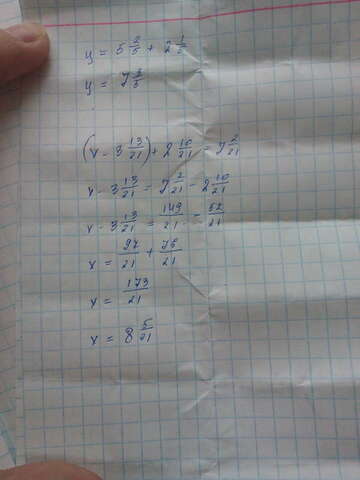 y = 5 2/5 + 2 1/5
y = 7 3/5
(x - 3 13/21) + 2 10/21 = 7 2/21
x - 3 13/21 = 7 2/21 - 2 10/21
x - 3 13/21 = 149/21 - 52/21
x = 97/21 + 76/21
x = 173/21
x = 8 5/21